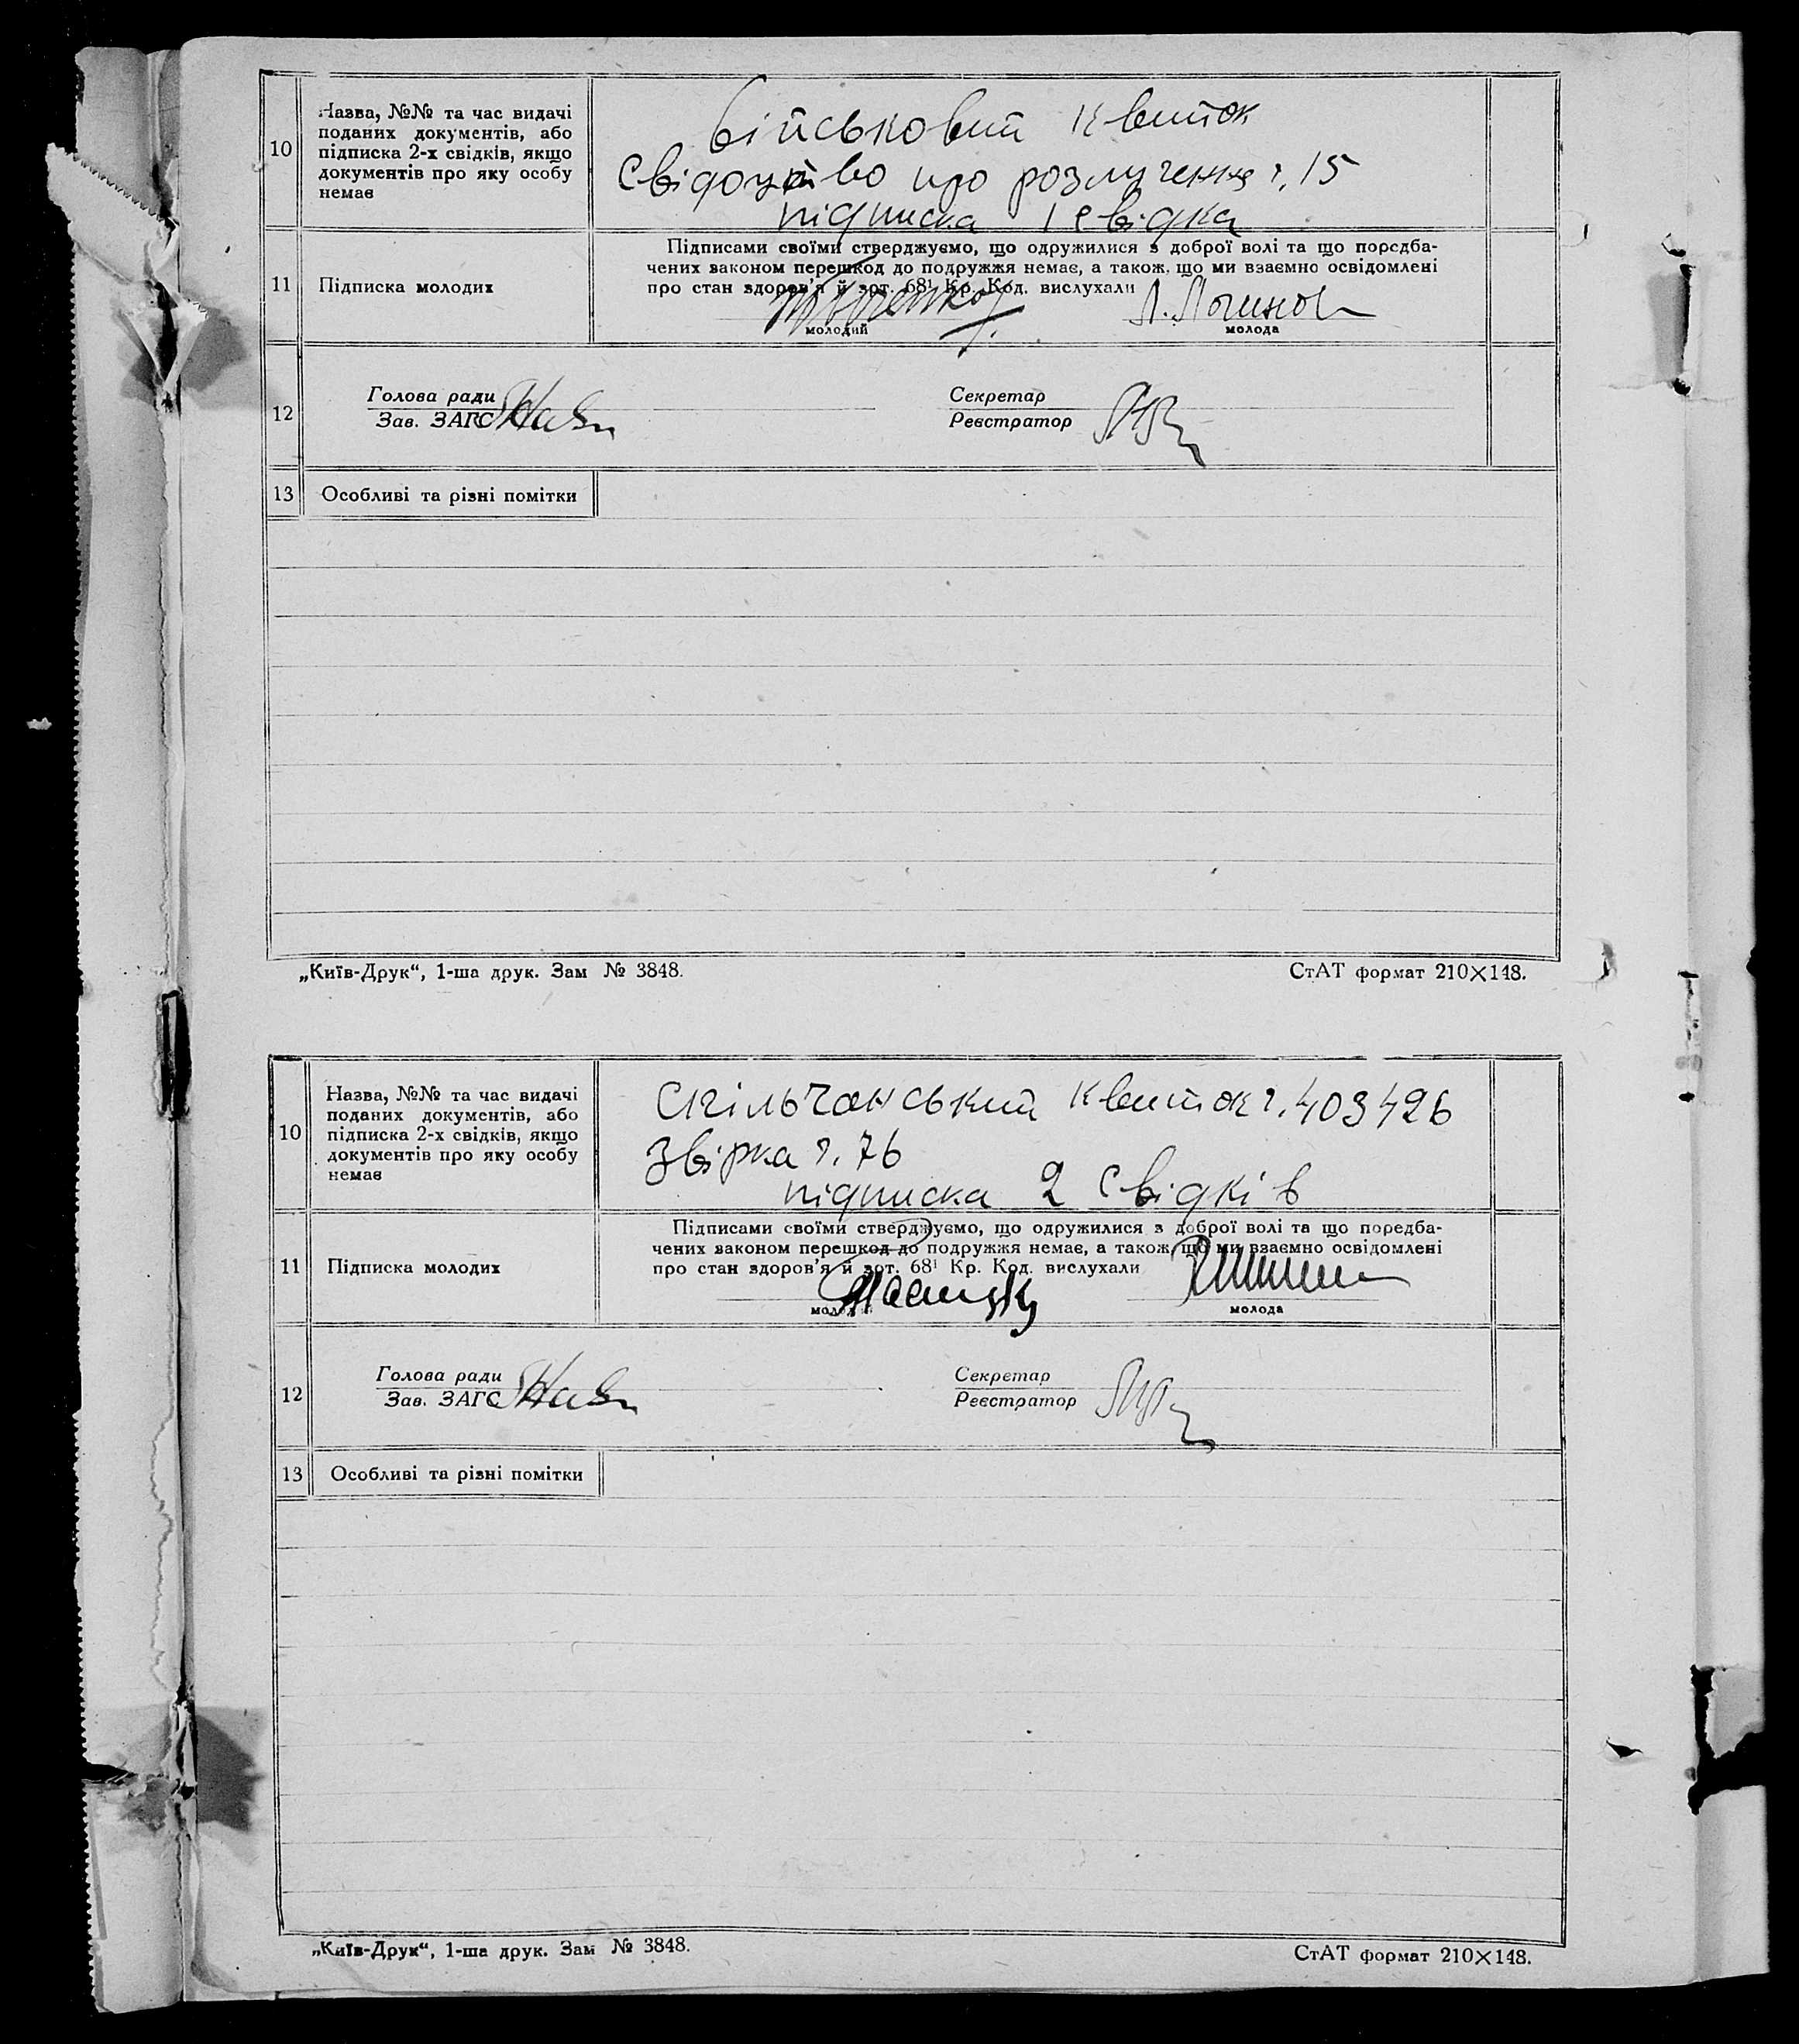 10
Назва, №№ та час видачі
поданих документів, або
підписка 2-х свідків, якщо
документів про яку особу
немає
військовий квиток
Свідоцтво про розлучення ч. 15
підписка 1 свідка
11
Підписка молодих
Підписами своїми стверджуємо, що одружилися з доброї волі та що поредба-
чених законом перешкод до подружжя немає, а також, що ми взаємно освідомлені
про стан здоров'я й арт. 68¹ Кр. Код. вислухали
Л. Логинов
молодий
молода
12
Голова ради
Зав. ЗАГС
Секретар
Реєстратор
13
Особливі та різні помітки
„Київ-Друк“, 1-ша друк. Зам № 3848.
СтАТ формат 210×148.
10
Назва, №№ та час видачі
поданих документів, або
підписка 2-х свідків, якщо
документів про яку особу
немає
спільчанський квиток ч. 403426
Звірка ч. 76
підписка 2 свідків
11
Підписка молодих
Підписами своїми стверджуємо, що одружилися з доброї волі та що поредба-
чених законом перешкод до подружжя немає, а також що ми взаємно освідомлені
про стан здоров'я й арт. 68¹ Кр. Код. вислухали
молодий
молода
12
Голова ради
Зав. ЗАГС
Секретар
Реєстратор
13
Особливі та різні помітки
„Київ-Друк“, 1-ша друк. Зам № 3848.
СтАТ формат 210×148.